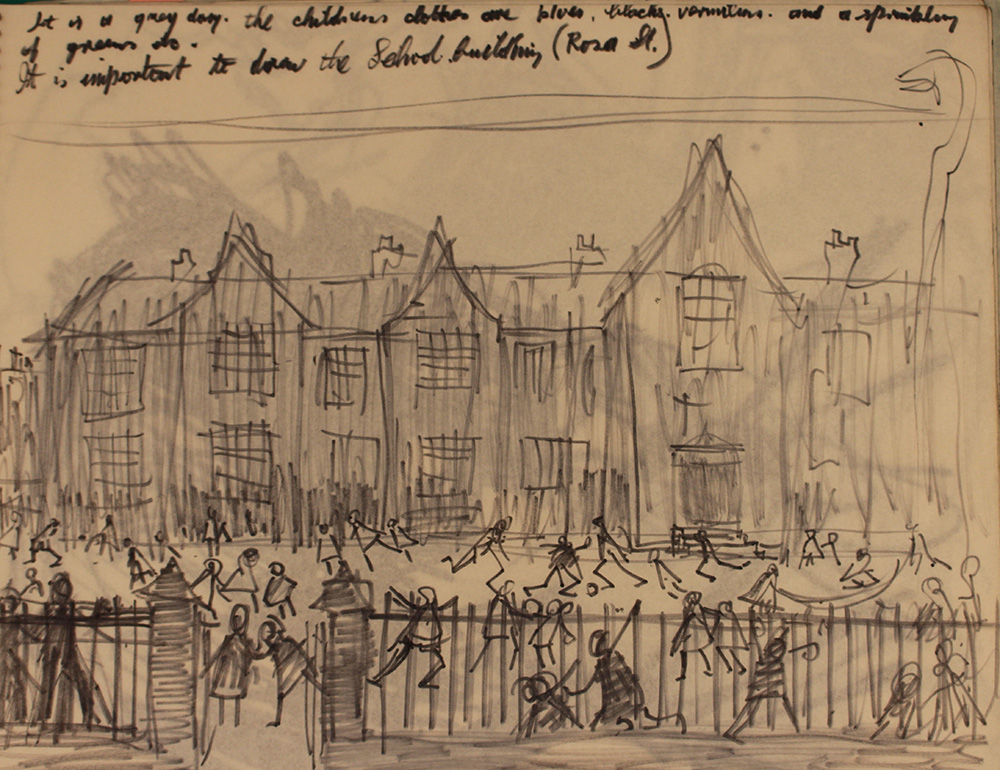 It is a grey day. the childrens clothes are blues, blacks, vermilions. and a sprinkling
of greens do.
It is important to draw the School building (Rosa St.)